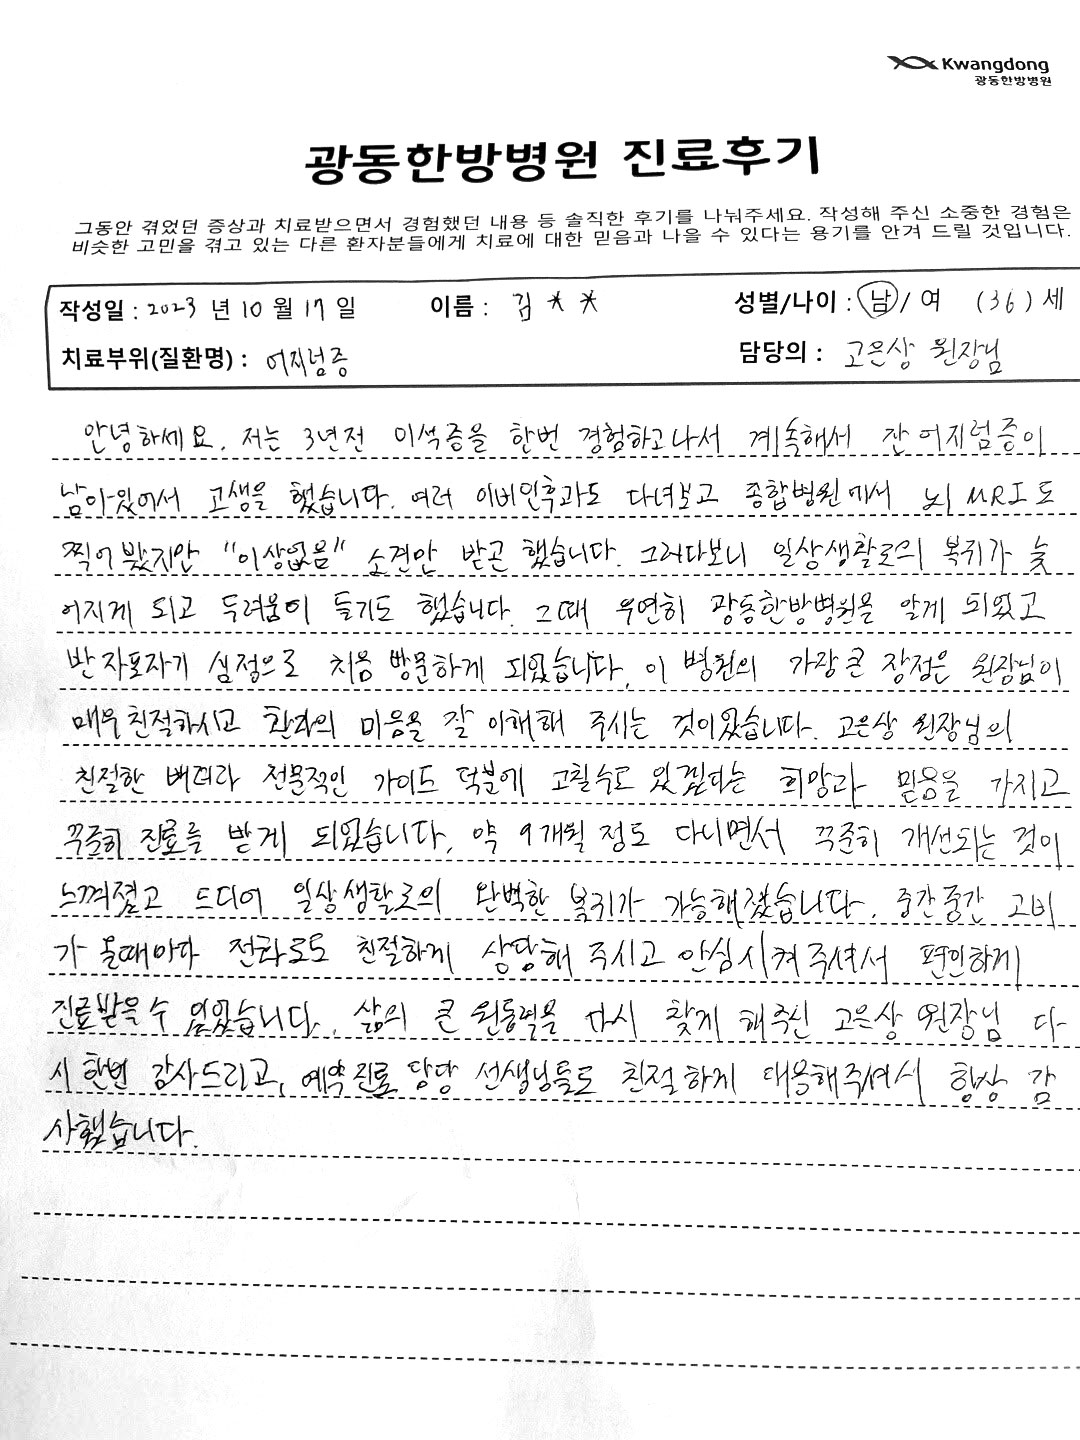 Kwangdong
광동한방병원
광동한방병원 진료후기
그동안 겪었던 증상과 치료받으면서 경험했던 내용 등 솔직한 후기를 나눠주세요. 작성해 주신 소중한 경험은
비슷한 고민을 겪고 있는 다른 환자분들에게 치료에 대한 믿음과 나을 수 있다는 용기를 안겨 드릴 것입니다.
작성일 : 2023 년 10 월 17 일 이름 : 김 * * 성별/나이 : 남 / 여 (36) 세
치료부위(질환명) : 어지럼증 담당의 : 고은상 원장님
안녕하세요. 저는 3년전 이석증을 한번 경험하고나서 계속해서 잔 어지럼증이
남아있어서 고생을 했습니다. 여러 이비인후과도 다녀보고 종합병원에서 뇌 MRI도
찍어봤지만 "이상없음" 소견만 받곤 했습니다. 그러다보니 일상생활로의 복귀가 늦
어지게 되고 두려움이 들기도 했습니다. 그때 우연히 광동한방병원을 알게 되었고
반 자포자기 심정으로 처음 방문하게 되었습니다. 이 병원의 가장 큰 장점은 원장님이
매우 친절하시고 환자의 마음을 잘 이해해 주시는 것이었습니다. 고은상 원장님의
친절한 배려와 전문적인 가이드 덕분에 고칠수도 있겠다는 희망과 믿음을 가지고
꾸준히 진료를 받게 되었습니다. 약 9개월 정도 다니면서 꾸준히 개선되는 것이
느껴졌고 드디어 일상생활로의 완벽한 복귀가 가능해졌습니다. 중간중간 고비
가 올때마다 전화로도 친절하게 상담해 주시고 안심시켜주셔서 편안하게
진료받을 수 있었습니다. 삶의 큰 원동력을 다시 찾게 해주신 고은상 원장님 다
시 한번 감사드리고, 예약 진료 담당 선생님들도 친절하게 대응해주셔서 항상 감
사했습니다.